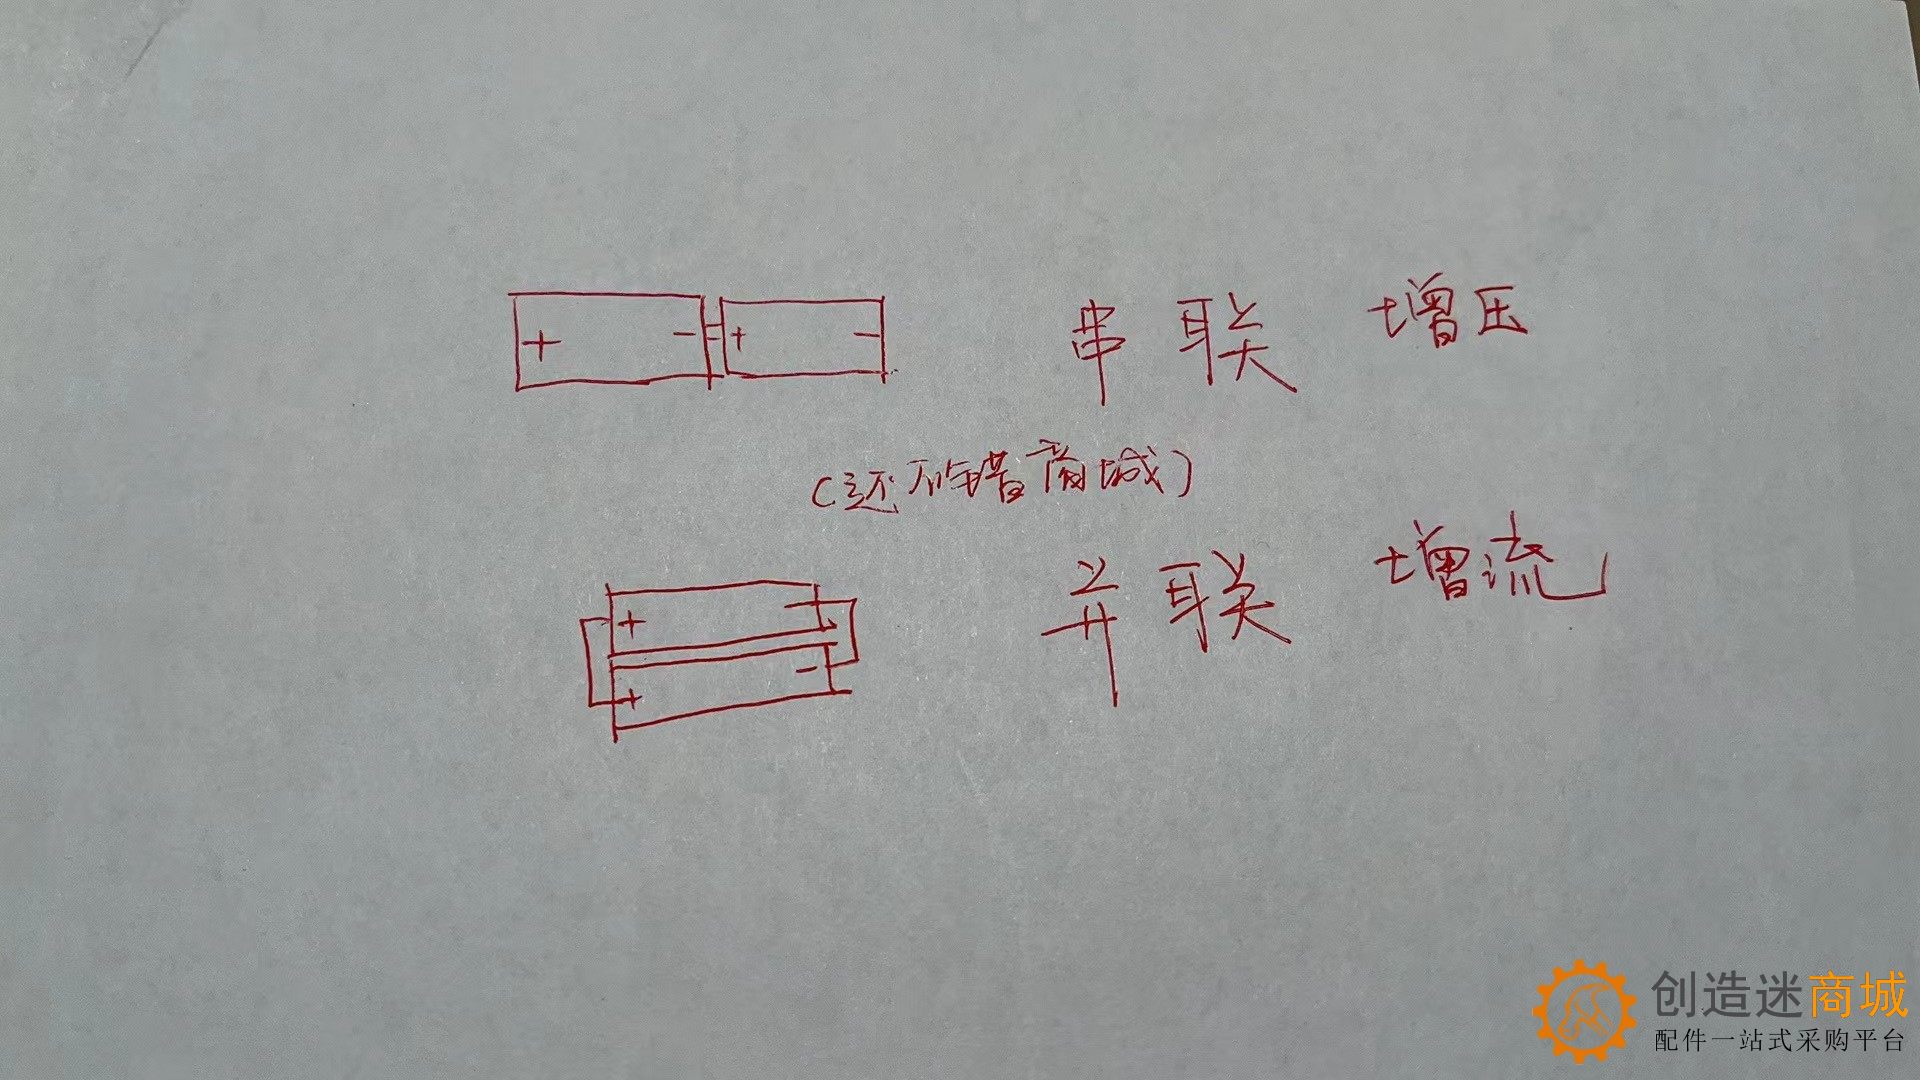 + - + - 串联 增压
(还不错商城)
+ - 并联 增流
+ -
创造迷商城
配件一站式采购平台